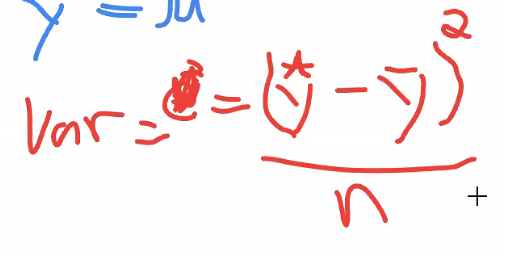 y = μ
Var = = (y* - ȳ)²
n